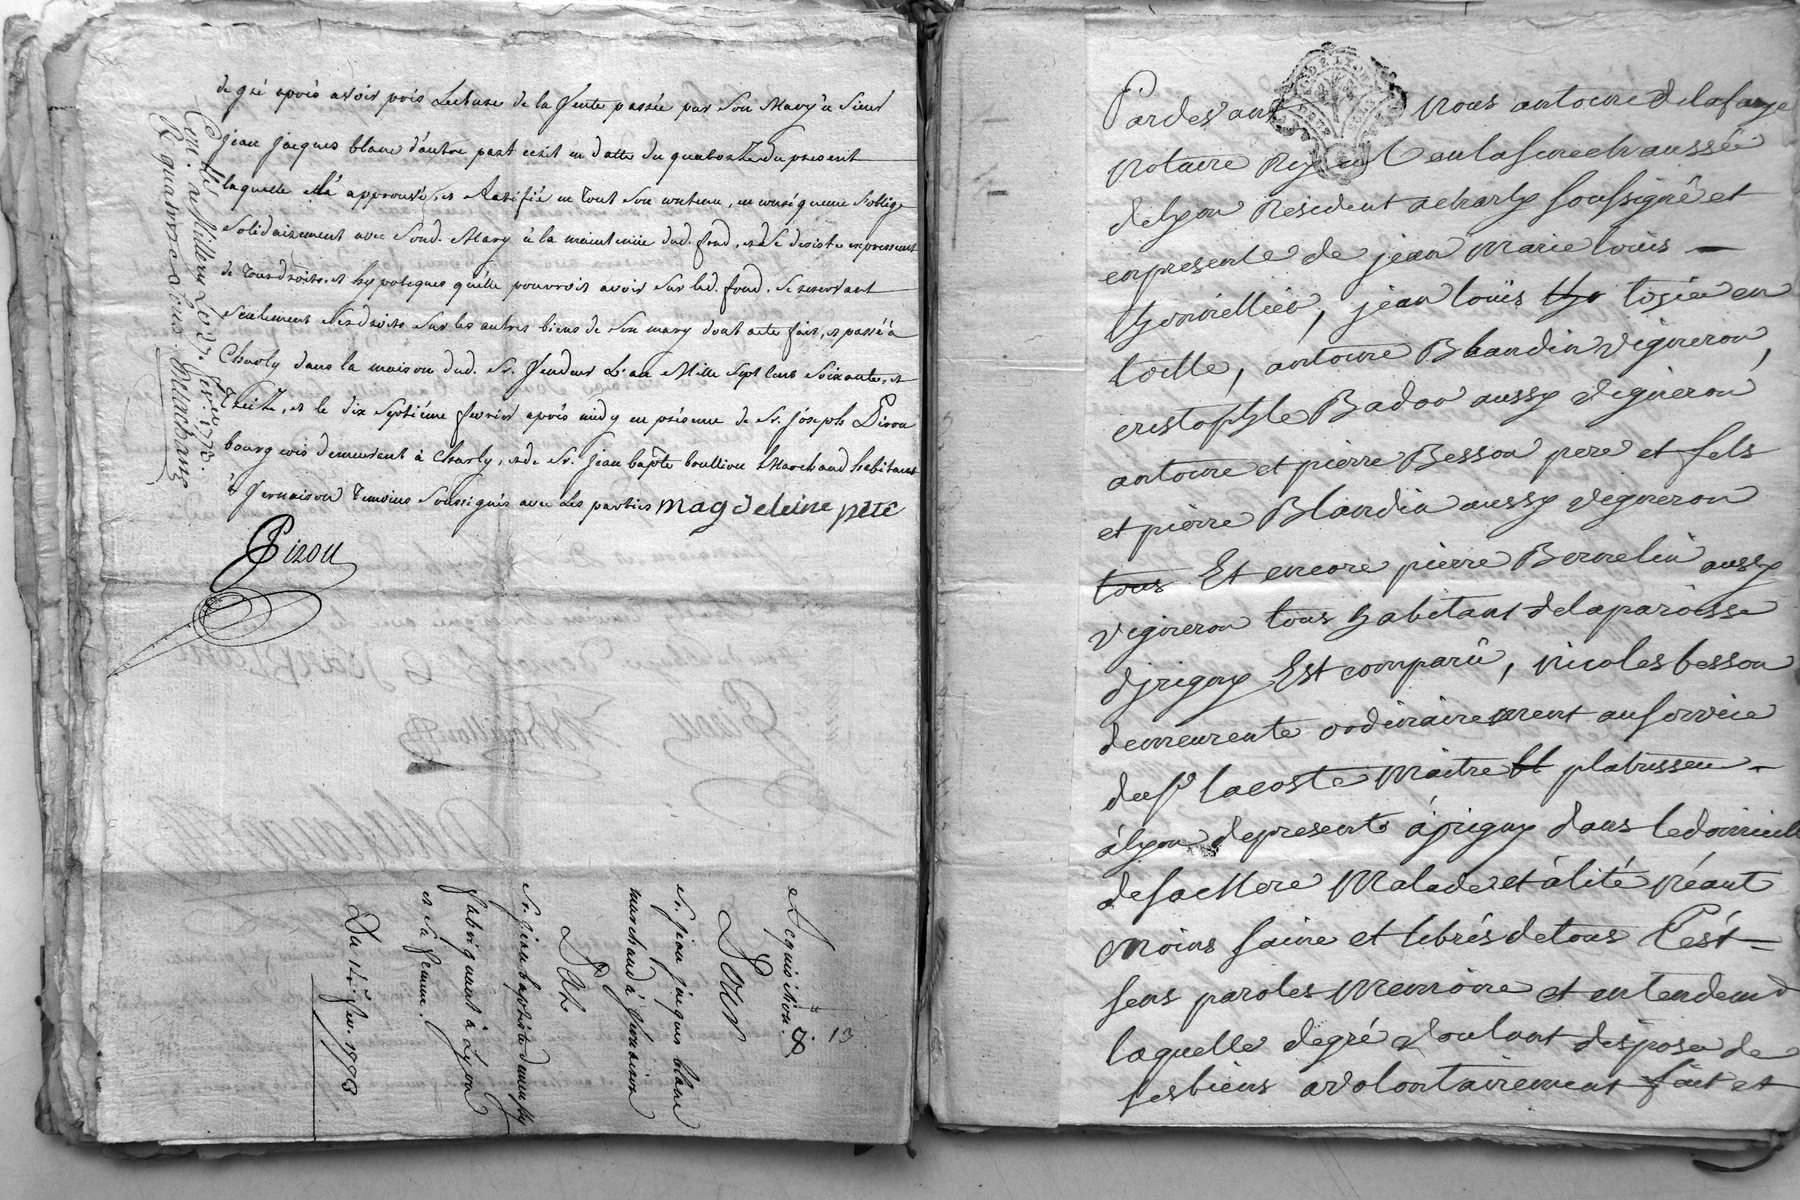 de gré après avoir pris Lecture de la Vente passée par Son Mary à Sieur
Jean Jacques blanc d'autre part ecrit en datte du quatorze du present
laquelle elle approuvé, et Ratifié en tout Son contenu, en conséquence s'oblige
Solidairement avec Sond. Mary à la maintenüe dud. fond, et se desiste expressement
de tous droits, et hypoteques qu'elle pouvroit avoir sur led. fond. Se reservant
Seulement Ses droits Sur les autres biens de Son mary dont acte fait, et passé à
Charly dans la maison dud. Sr. Vendeur L'an Mille Sept Cent Soixante, et
Treize, et le dix Septiéme fevrier après midy en présence de Sr. Joseph Pirou
bourgeois demeurant à Charly, et de Sr. Jean bapte boullion Marchand habitant
à Vernaison Temoins Soussignés avec Les parties magdeleine pite
Pirou
Con. lé à Millery Le 27 fev. 1773.
R quatorze Livres
Acquisition.
13
Pour
Sr. Jean Jacques blanc
marchand à Vernaison
Par
Sr. Jean baptiste
fabriquant à Lyon
et Sa femme.
Du 14e. fev. 1773
Pardevant nous antoine delafarge
notaire Royal en la senechaussée
delyon Resident acharly soussigné et
enpresente de jean Marie louis
jean louis tisier en
toille, antoine Blandin vigneron,
cristophle Badou aussy vigneron
antoine et pierre Besson pere et fels
et pierre Blandin aussy vigneron
tous Et encore pierre Bernelin aussy
vigneron tous habitant delaparoisse
dirigny Est comparû, nicoles besson
demeurente ordinairement auservice
dusr lacoste Maitre platrisseu
àlyon depresente àirigny dans ledomicille
desa Mere Malade et àlité néant
Moins saine et lebrés detous Cest
sens paroles Memoire et entendem
laquelle degré voulant disposer de
ses biens avolontairement fait et